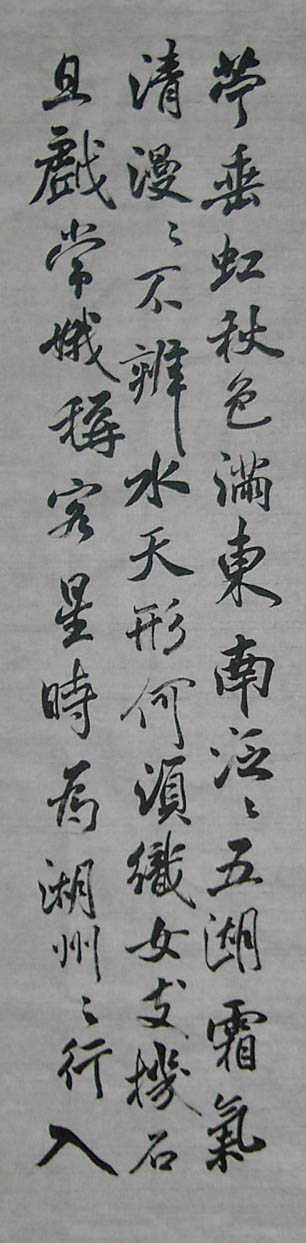 苧垂虹秋色滿東南泛〻五湖霜氣
清漫〻不辨水天形何須織女支機石
且戲常娥稱客星時為湖州之行入